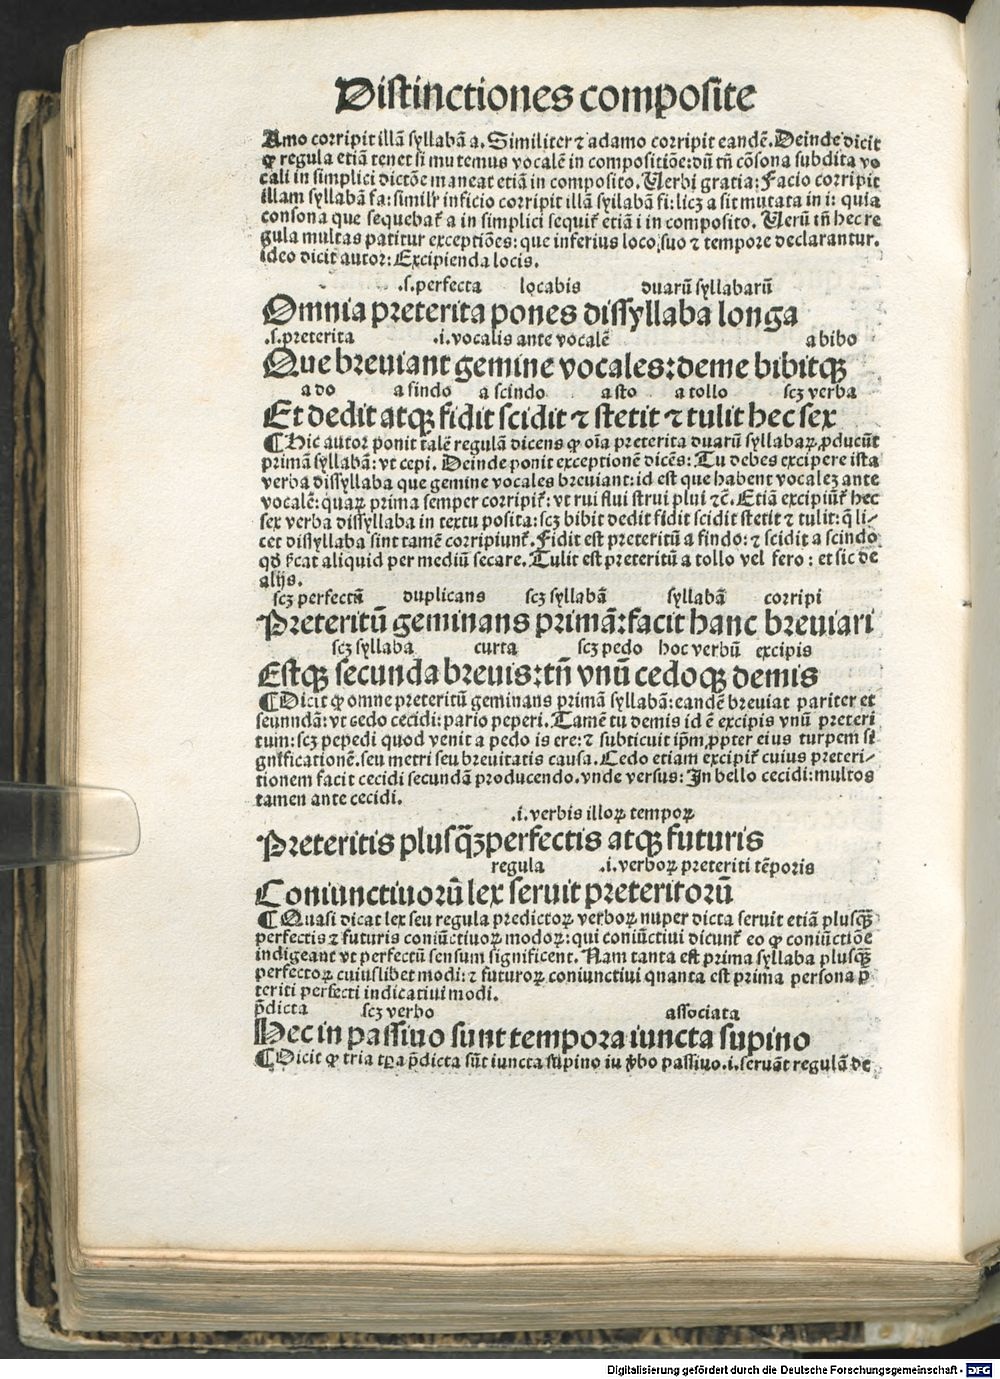 Distinctiones composite
Amo corripit illã syllabã a. Similiter ⁊ adamo corripit eandẽ. Deinde dicit
ꝙ regula etiã tenet si mutemus vocalẽ in compositiõe: dũ tñ cõsona subdita vo
cali in simplici dictõe maneat etiã in composito. Uerbi gratia: Facio corripit
illam syllabã fa: similr inficio corripit illã syllabã fi: licꝫ a sit mutata in i: quia
consona que sequebat᷑ a in simplici sequit᷑ etiã i in composito. Uerũ tñ hec re
gula multas patitur exceptiões: que inferius loco suo ⁊ tempore declarantur.
ideo dicit autor: Excipienda locis.
.s. perfecta locabis duarũ syllabarũ
Omnia preterita pones dissyllaba longa
.s. preterita .i. vocalis ante vocalẽ a bibo
Que breuiant gemine vocales: deme bibitqꝫ
a do a findo a scindo a sto a tollo scꝫ verba
Et dedit atqꝫ fidit scidit ⁊ stetit ⁊ tulit hec sex
¶ Hic autor ponit talẽ regulã dicens ꝙ oĩa preterita duarũ syllabaꝝ ꝓducũt
primã syllabã: vt cepi. Deinde ponit exceptionẽ dicẽs: Tu debes excipere ista
verba dissyllaba que gemine vocales breuiant: id est que habent vocaleʒ ante
vocalẽ: quaꝝ prima semper corripit᷑: vt rui flui strui plui ⁊c̃. Etiã excipiũt᷑ hec
sex verba dissyllaba in textu posita: scꝫ bibit dedit fidit scidit stetit ⁊ tulit: q̃ li⸗
cet dissyllaba sint tamẽ corripiunt᷑. Fidit est preteritũ a findo: ⁊ scidit a scindo
qd̕ s̕cat aliquid per mediũ secare. Tulit est preteritũ a tollo vel fero: et sic de
alijs.
scꝫ perfectũ duplicans scꝫ syllabã syllabã corripi
Preteritũ geminans primã: facit hanc breuiari
scꝫ syllaba curta scꝫ pedo hoc verbũ excipis
Estqꝫ secunda breuis: tñ vnũ cedoqꝫ demis
¶ Dicit ꝙ omne preteritũ geminans primã syllabã: eandẽ breuiat pariter et
seunndã: vt cedo cecidi: pario peperi. Tamẽ tu demis id ẽ excipis vnũ preteri
tum: scꝫ pepedi quod venit a pedo is ere: ⁊ subticuit ip̃m ꝓpter eius turpem si
gnificationẽ. seu metri seu breuitatis causa. Cedo etiam excipit᷑ cuius preteri⸗
tionem facit cecidi secundã producendo. vnde versus: In bello cecidi: multos
tamen ante cecidi.
.i. verbis illoꝝ tempoꝝ
Preteritis plusq̃ꝫperfectis atqꝫ futuris
regula .i. verboꝝ preteriti tẽporis
Coniunctiuorũ lex seruit preteritorũ
¶ Quasi dicat lex seu regula predictoꝝ verboꝝ nuper dicta seruit etiã plusqꝫ̃
perfectis ⁊ futuris coniũctiuoꝝ modoꝝ: qui coniũctiui dicunt᷑ eo ꝙ coniũctiõe
indigeant vt perfectũ sensum significent. Nam tanta est prima syllaba plusqꝫ̃
perfectoꝝ cuiuslibet modi: ⁊ futuroꝝ coniunctiui quanta est prima persona p̃
teriti perfecti indicatiui modi.
p̃dicta scꝫ verbo associata
Hec in passiuo sunt tempora iuncta supino
¶ Dicit ꝙ tria tꝑa p̃dicta sũt iuncta supino in v̕bo passiuo .i. seruãt regulã de
Digitalisierung gefördert durch die Deutsche Forschungsgemeinschaft - DFG